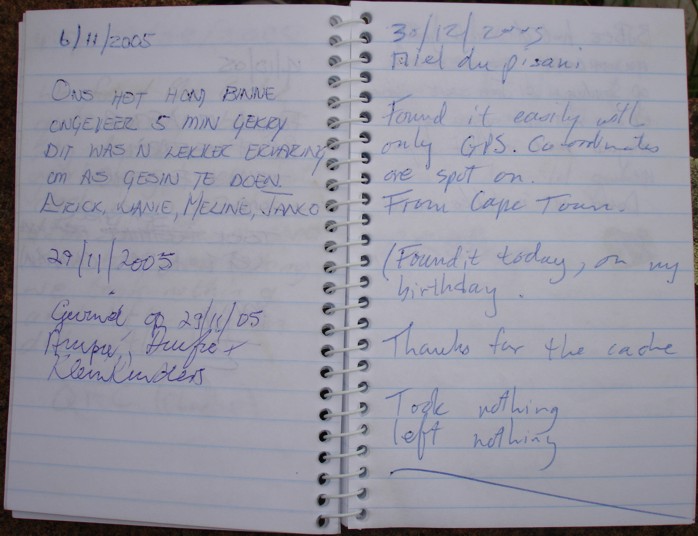 6/11/2005
ONS HET HOM BINNE
ONGEVEER 5 MIN GEKRY
DIT WAS 'N LEKKER ERVARING
OM AS GESIN TE DOEN.
MELINE, JANKO
29/11/2005
op 29/11/05
Kleinkinders
30/12/2005
du pisani
Found it easily with
only GPS. Co-ordinates
are spot on.
From Cape Town.
(Found it today, on my
birthday.
Thanks for the cache
Took nothing
left nothing